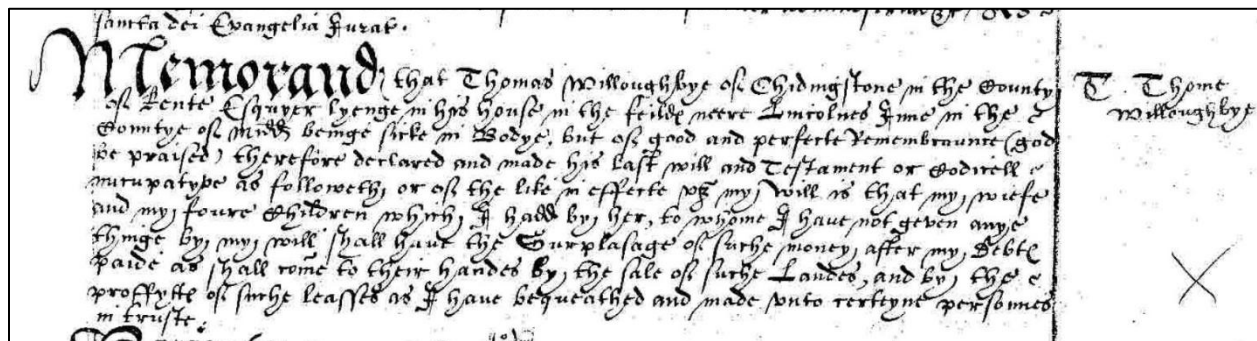 sancta dei Evangelia Jurat.
Memorand that Thomas Willoughbye of Chidingstone in the County
T. Thome
Willoughbye
of Kente Esquyer lyenge in his house in the feilds neere Lincolnes Inne in the
Countye of Midd beinge sicke in Bodye, but of good and perfecte Remembraunce (god
be praised) therefore declared and made his last will and Testament or Codicell
nuncupatyve as followeth, or of the like in effecte vz my will is that my wiefe
and my foure Children which I hadd by her, to whome I have not geven anye
thinge by my will shall have the Surplasage of suche money after my Debts
paide as shall come to their handes by the sale of suche Landes, and by the
proffytts of suche leasses as I have bequeathed and made vnto certeyne personnes
in truste.